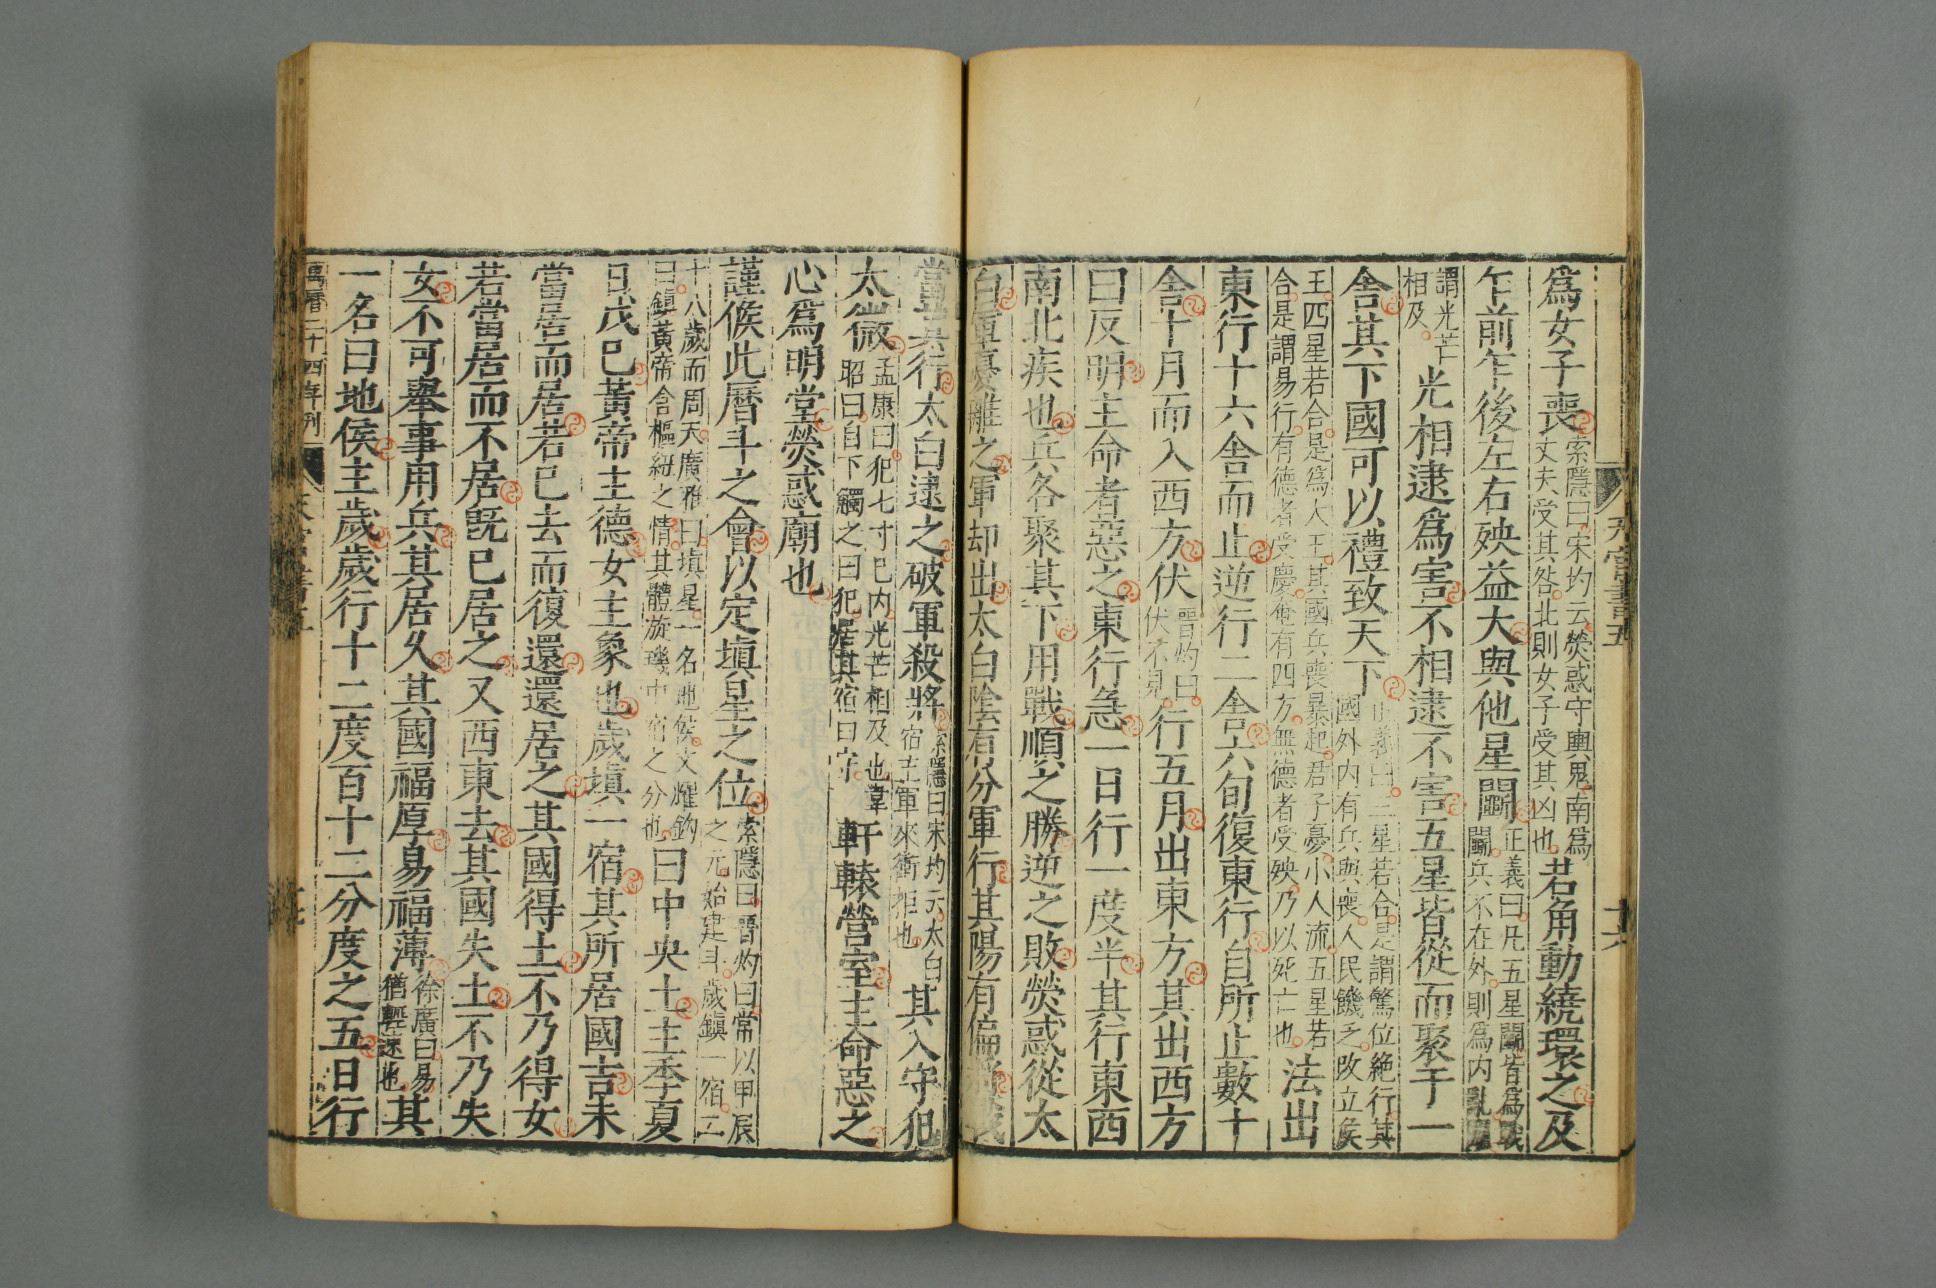 天官書五
十六
爲女子喪索隱曰宋均云熒惑守輿鬼南爲丈夫受其咎北則女子受其凶也若角動繞環之及
乍前乍後左右殃益大與他星鬬正義曰凡五星鬬皆爲戰鬬兵不在外則爲内亂
謂光芒相及光相逮爲害不相逮不害五星皆從而聚于一
舍其下國可以禮致天下正義曰三星若合是謂驚位絶行其國外内有兵與喪人民饑乏改立侯
王四星若合是爲大王其國兵喪暴起君子憂小人流五星若合是謂易行有德者受慶奄有四方無德者受殃乃以死亡也法出
東行十六舍而止逆行二舍六旬復東行自所止數十
舍十月而入西方伏晉灼曰伏不見行五月出東方其出西方
曰反明主命者惡之東行急一日行一度半其行東西
南北疾也兵各聚其下用戰順之勝逆之敗熒惑從太
白軍憂離之軍却出太白陰有分軍行其陽有偏將戰
當其行太白逮之破軍殺將索隱曰宋均云太白宿主軍來衝拒也其入守犯
太微孟康曰犯七寸已内光芒相及也韋昭曰自下觸之曰犯居其宿曰守軒轅營室主命惡之
心爲明堂熒惑廟也
謹候此曆斗之會以定填星之位索隱曰晉灼曰常以甲辰之元始建斗歲鎮一宿二
十八歲而周天廣雅曰填星一名地侯文耀鈎曰鎮黃帝含樞紐之情其體旋璣中宿之分也曰中央土主季夏
日戊巳黃帝主德女主象也歲填一宿其所居國吉未
當居而居若巳去而復還還居之其國得土不乃得女
若當居而不居旣巳居之又西東去其國失土不乃失
女不可舉事用兵其居久其國福厚易福薄徐廣曰易猶輕速也其
一名曰地侯主歲歲行十二度百十二分度之五日行
萬曆二十四年刊
天官書五